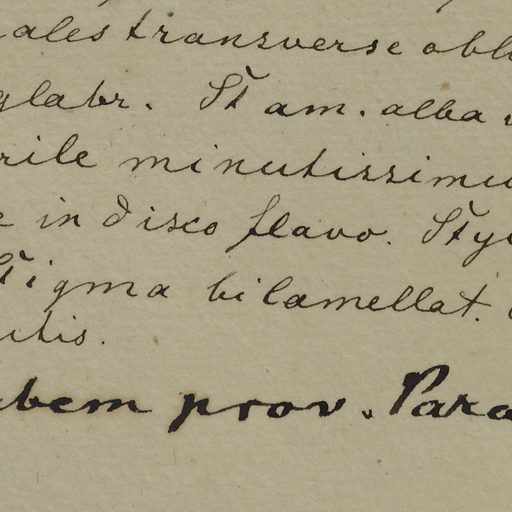 ales transverse obl
glabr. Stam. alba
rile minutissimu
e in disco flavo. Sty
Stigma bilamellat.
utis.
bem prov. Para